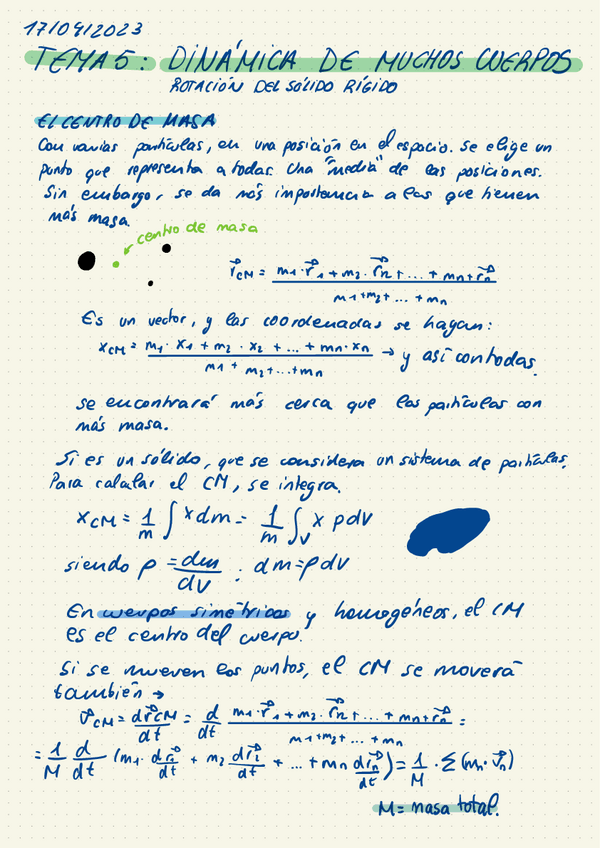 17/04/2023
TEMA 5: DINÁMICA DE MUCHOS CUERPOS
ROTACIÓN DEL SÓLIDO RÍGIDO
EL CENTRO DE MASA
Con varias partículas, en una posición en el espacio. Se elige un
punto que representa a todas. Una "media" de las posiciones.
Sin embargo, se da más importancia a las que tienen
más masa.
centro de masa
r⃗CM = (m1·r⃗1 + m2·r⃗2 + ... + mn·r⃗n) / (m1+m2+ ... + mn)
Es un vector, y las coordenadas se hayan:
xCM = (m1·x1 + m2·x2 + ... + mn·xn) / (m1+ m2+...+mn) → y así con todas.
Se encontrará más cerca que las partículas con
más masa.
Si es un sólido, que se considera un sistema de partículas.
Para calular el CM, se integra.
xCM = 1/m ∫ x dm = 1/m ∫V x ρdV
siendo ρ = dm/dV ; dm=ρdV
En cuerpos simétricos y homogéneos, el CM
es el centro del cuerpo.
Si se mueven los puntos, el CM se moverá
también →
v⃗CM = dr⃗CM/dt = d/dt (m1·r⃗1 + m2·r⃗2 + ... + mn·r⃗n) / (m1+m2+ ... + mn) =
= 1/M d/dt (m1· dr⃗1/dt + m2 dr⃗2/dt + ... + mn dr⃗n/dt) = 1/M · Σ(mn·v⃗n)
M = masa total.